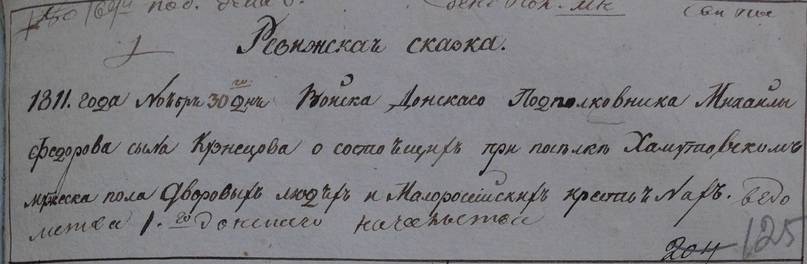 Ревижская сказка.
1811. года Ноября 30го дня Войска Донскаго Подполковника Михаилы
Федорова сына Кузнецова о состоящихъ при поселкѣ Хамутовскомъ
мужеска пола дворовыхъ людяхъ и Малороссiйскихъ крестьянахъ. ведо
мства 1.го донскаго начальства
204 125